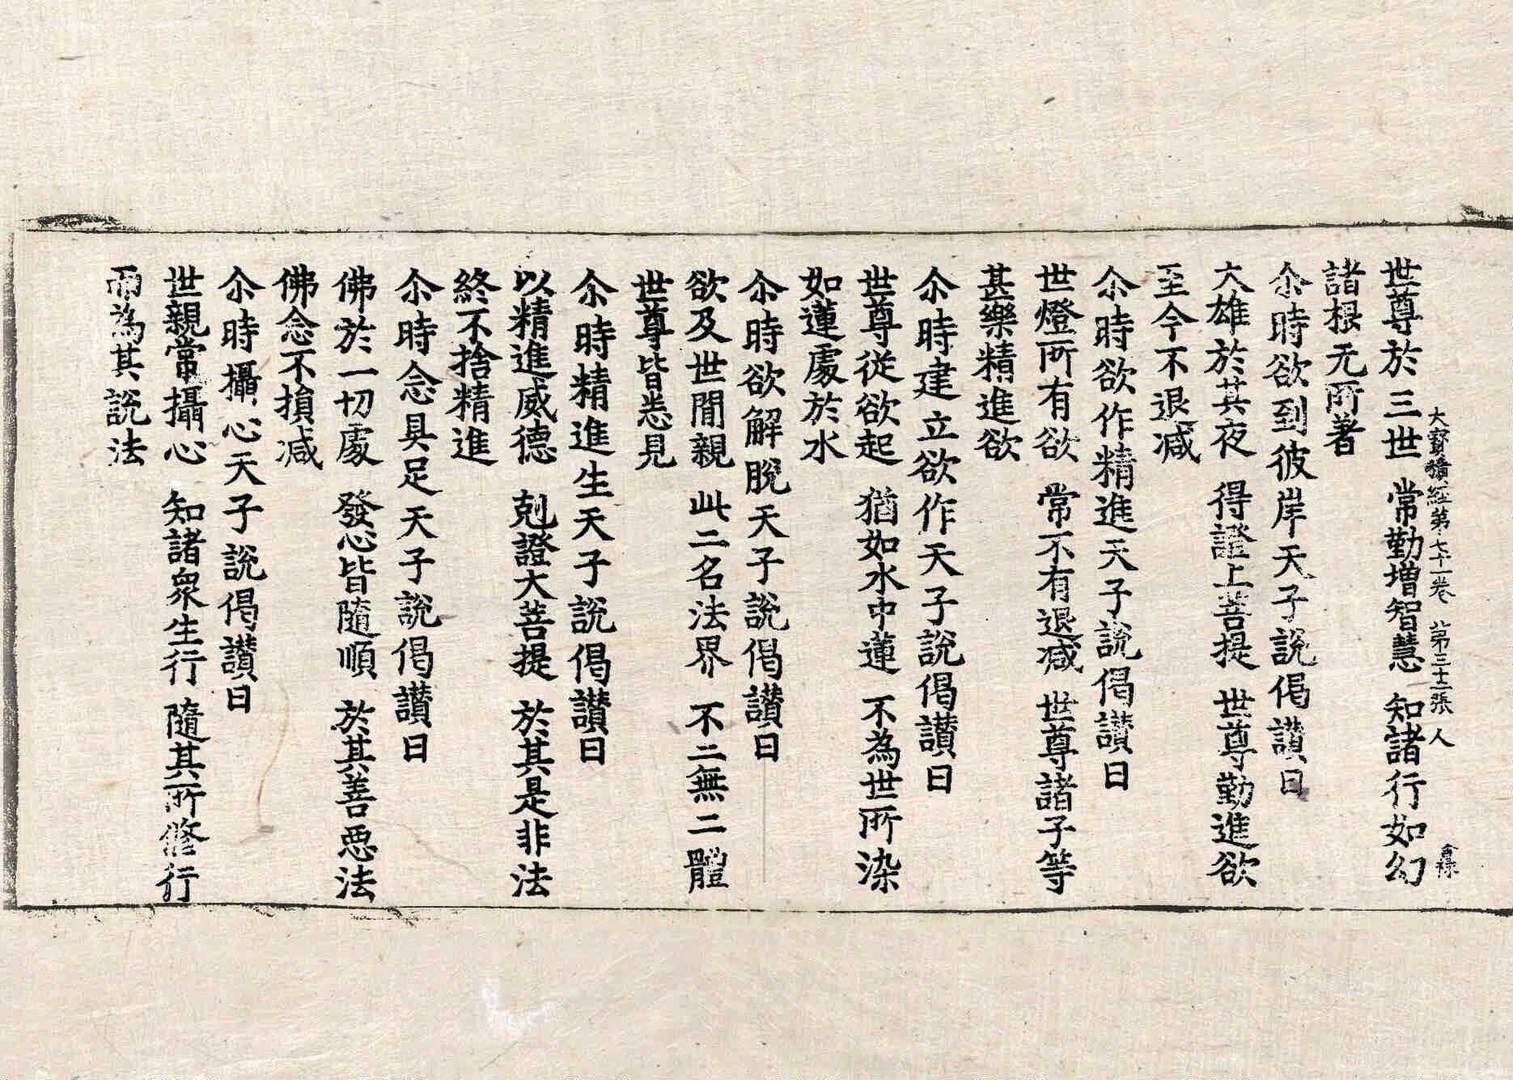 世尊於三世 常勤增智慧 知諸行如幻
大寶積經第七十一卷 第三十二張 人
諸根无所著
尒時欲到彼岸天子說偈讃曰
大雄於其夜 得證上菩提 世尊勤進欲
至今不退減
尒時欲作精進天子說偈讃曰
世燈所有欲 常不有退減 世尊諸子等
甚樂精進欲
尒時建立欲作天子說偈讃曰
世尊從欲起 猶如水中蓮 不為世所染
如蓮處於水
尒時欲解脫天子說偈讃曰
欲及世間親 此二名法界 不二無二體
世尊皆悉見
尒時精進生天子說偈讃曰
以精進威德 剋證大菩提 於其是非法
終不捨精進
尒時念具足天子說偈讃曰
佛於一切處 發心皆隨順 於其善惡法
佛念不損減
尒時攝心天子說偈讃曰
世親常攝心 知諸眾生行 隨其所修行
而為其說法